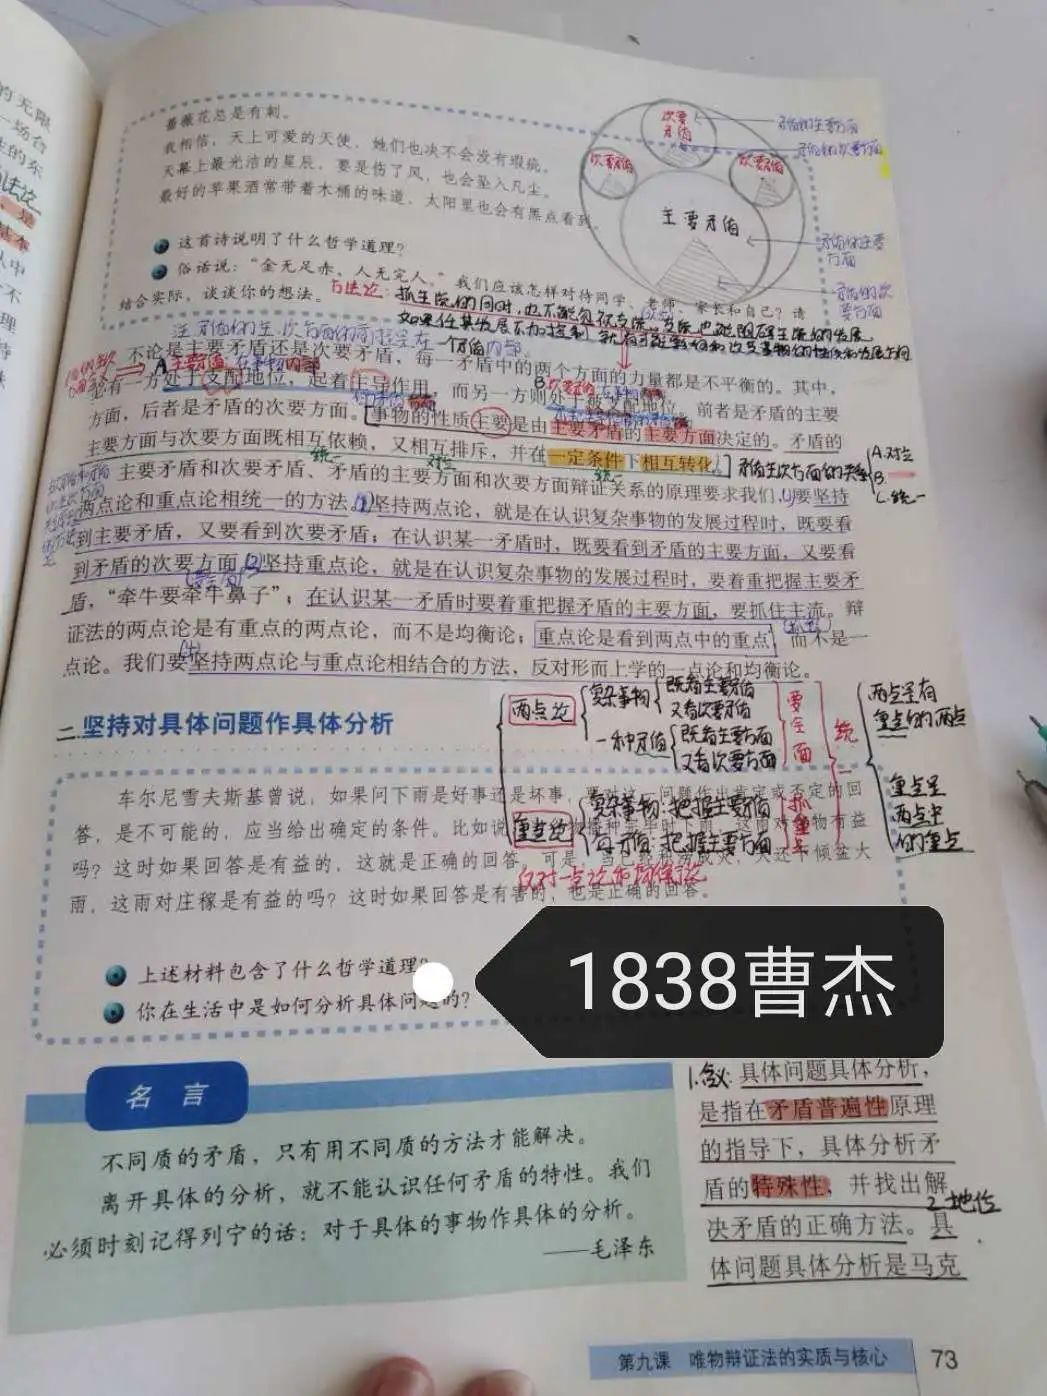 蔷薇花总是有刺。
我相信，天上可爱的天使，她们也决不会没有瑕疵。
天幕上最光洁的星辰，要是伤了风，也会坠入凡尘。
最好的苹果酒常带着木桶的味道，太阳里也会有黑点看到。
次要矛盾
次要矛盾
次要矛盾
主要矛盾
矛盾的主要方面
矛盾的次要方面
矛盾的主要方面
矛盾的次要方面
这首诗说明了什么哲学道理？
俗话说：“金无足赤，人无完人。”我们应该怎样对待同学、老师、家长和自己？请
结合实际，谈谈你的想法。
方法论：抓主流的同时，也不能忽视支流
不论是主要矛盾还是次要矛盾，每一矛盾中的两个方面的力量都是不平衡的。其中，
总有一方处于支配地位，起着主导作用，而另一方则处于被支配地位。前者是矛盾的主要
方面，后者是矛盾的次要方面。事物的性质主要是由主要矛盾的主要方面决定的。矛盾的
主要方面与次要方面既相互依赖，又相互排斥，并在一定条件下相互转化。
统一
对立
统一
矛盾主次方面的关系
A.对立
B.
C.统一
主要矛盾和次要矛盾、矛盾的主要方面和次要方面辩证关系的原理要求我们，(1)要坚持
两点论和重点论相统一的方法。(2)坚持两点论，就是在认识复杂事物的发展过程时，既要看
到主要矛盾，又要看到次要矛盾；在认识某一矛盾时，既要看到矛盾的主要方面，又要看
到矛盾的次要方面。(3)坚持重点论，就是在认识复杂事物的发展过程时，要着重把握主要矛
盾，“牵牛要牵牛鼻子”；在认识某一矛盾时要着重把握矛盾的主要方面，要抓住主流。辩
证法的两点论是有重点的两点论，而不是均衡论；重点论是看到两点中的重点，而不是一
点论。我们要(4)坚持两点论与重点论相结合的方法，反对形而上学的一点论和均衡论。
两点论
复杂事物
既看主要矛盾
又看次要矛盾
一种矛盾
既看主要方面
又看次要方面
要全面
重点论
复杂事物：把握主要矛盾
每一矛盾：把握主要方面
抓重点
统一
两点是有
重点的两点
重点是
两点中
的重点
反对一点论和均衡论
二.坚持对具体问题作具体分析
车尔尼雪夫斯基曾说，如果问下雨是好事还是坏事，要对这一问题作出肯定或否定的回
答，是不可能的，应当给出确定的条件。比如说
吗？这时如果回答是有益的，这就是正确的回答。可是，当已经积涝成灾，天还下倾盆大
雨，这雨对庄稼是有益的吗？这时如果回答是有害的，也是正确的回答。
上述材料包含了什么哲学道理？
你在生活中是如何分析具体问题的？
1838曹杰
名 言
不同质的矛盾，只有用不同质的方法才能解决。
离开具体的分析，就不能认识任何矛盾的特性。我们
必须时刻记得列宁的话：对于具体的事物作具体的分析。
——毛泽东
1.含义：具体问题具体分析，
是指在矛盾普遍性原理
的指导下，具体分析矛
盾的特殊性，并找出解
2.地位
决矛盾的正确方法。具
体问题具体分析是马克
第九课 唯物辩证法的实质与核心 73